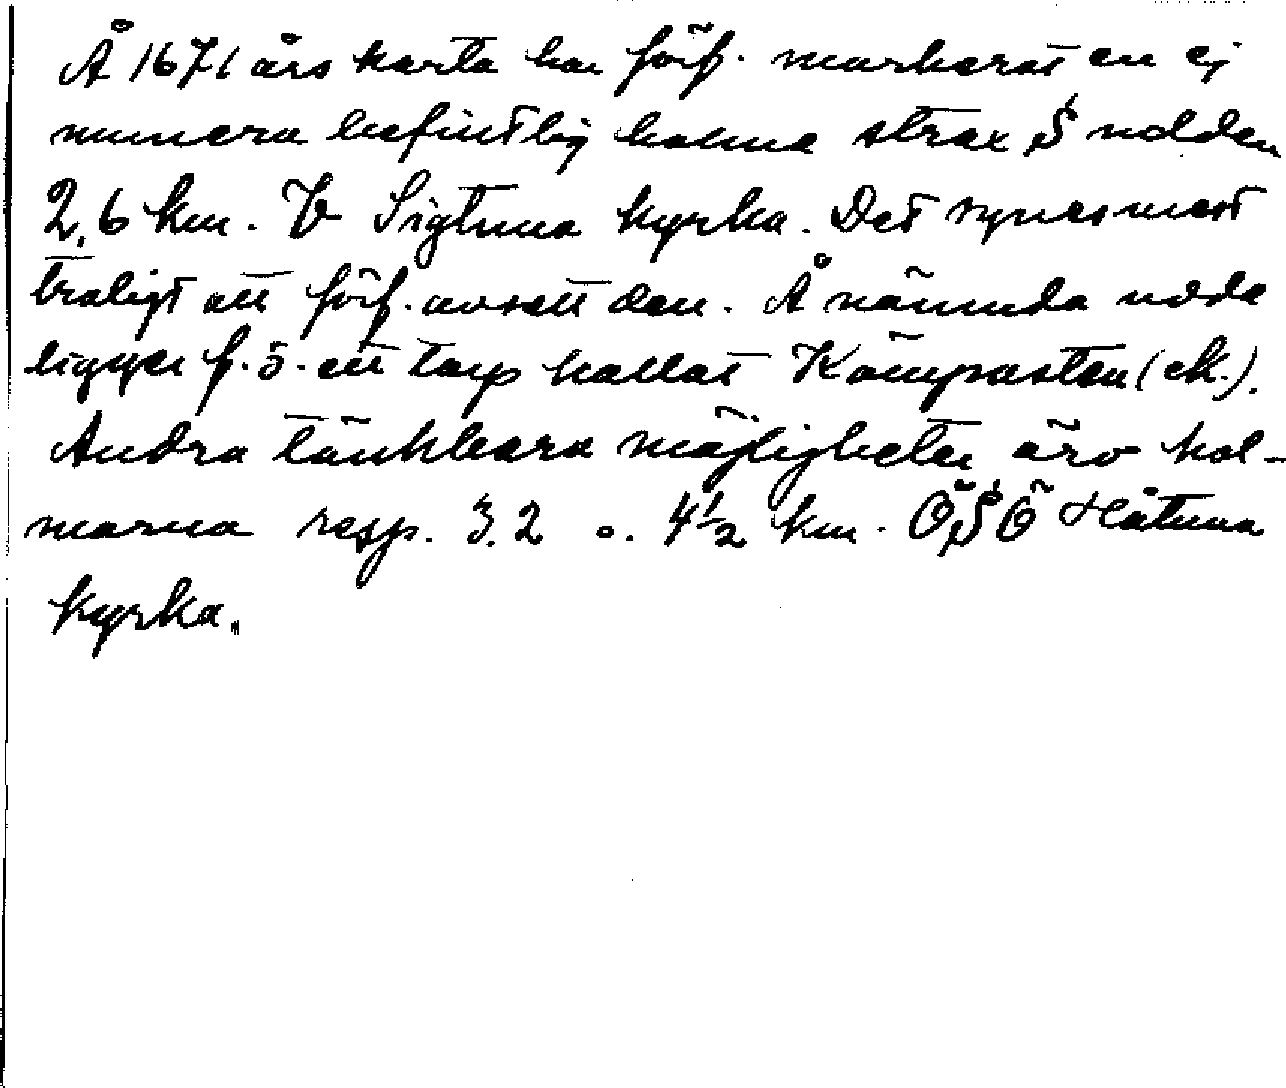 Å 1671 års karta har förf. markerat en ej
numera befintlig holme strax S udden
2,6 km. V Sigtuna kyrka. Det synes mest
troligt att förf. avsett den. Å nämnda udde
ligger f.ö. ett torp kallat Kämpasten (ek.).
Andra tänkbara möjligheter äro hol-
marna resp. 3,2 o. 4½ km. ÖSÖ Håtuna
kyrka.